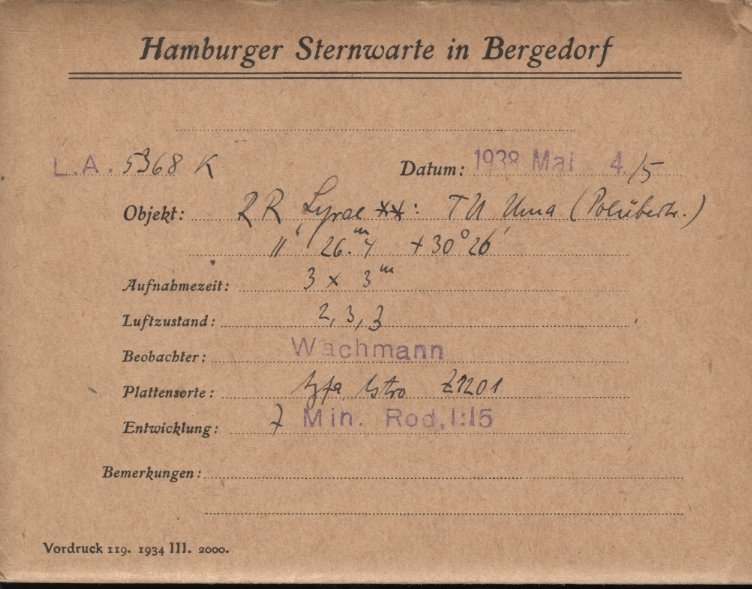 Hamburger Sternwarte in Bergedorf
L.A. 5368 K Datum: 1938 Mai 4./5
Objekt: RR Lyrae **: TU Uma (Polübertr.)
11ʰ 26.ᵐ4 +30° 26'
Aufnahmezeit: 3 x 3ᵐ
Luftzustand: 2, 3, 3
Beobachter: Wachmann
Plattensorte: Agfa Astro Z1201
Entwicklung: 7 Min. Rod, 1:15
Bemerkungen:
Vordruck 119. 1934 III. 2000.